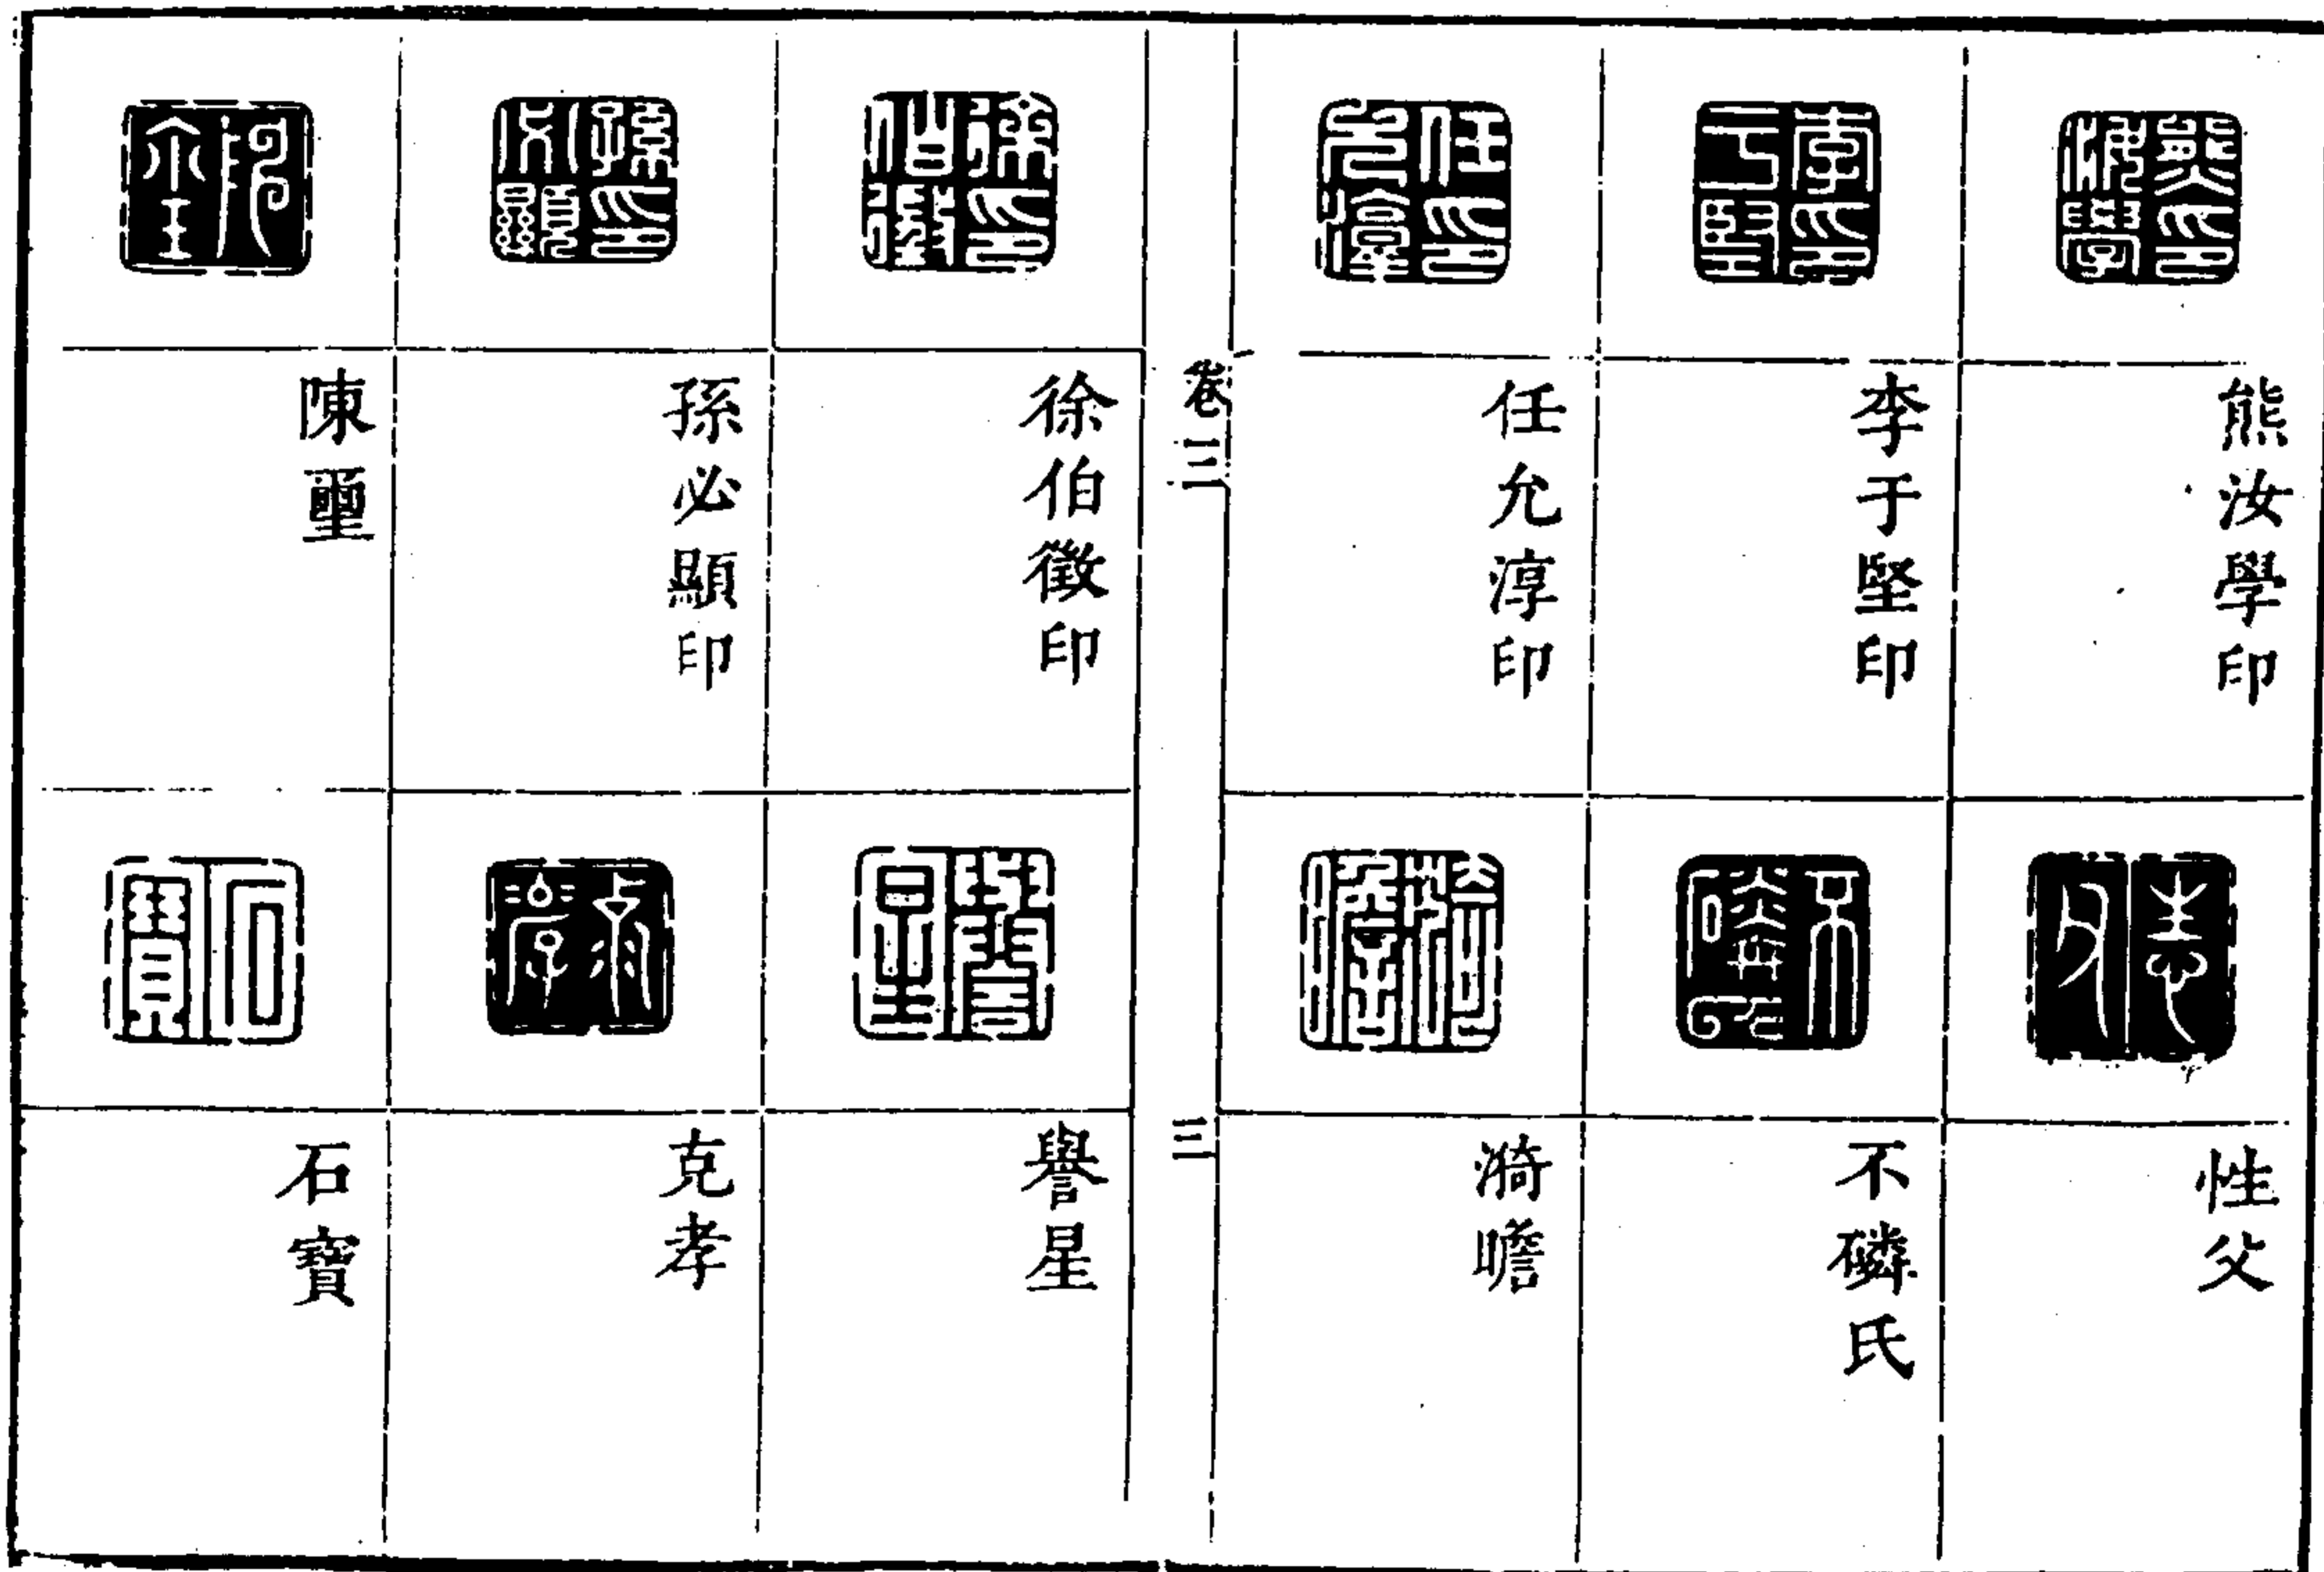 熊汝學印
性父
李于堅印
不磷氏
任允淳印
漪瞻
卷三
三
徐伯徵印
譽星
孫必顯印
克孝
陳璽
石寶